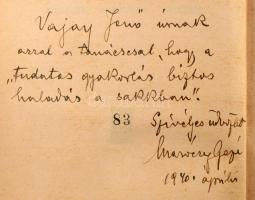 Vajay Jenő úrnak
azzal a tanácscsal, hogy a
„tudatos gyakorlás biztos
haladás a sakkban".
83
Szívélyes üdvözlet
Maróczy Géza
1940. április